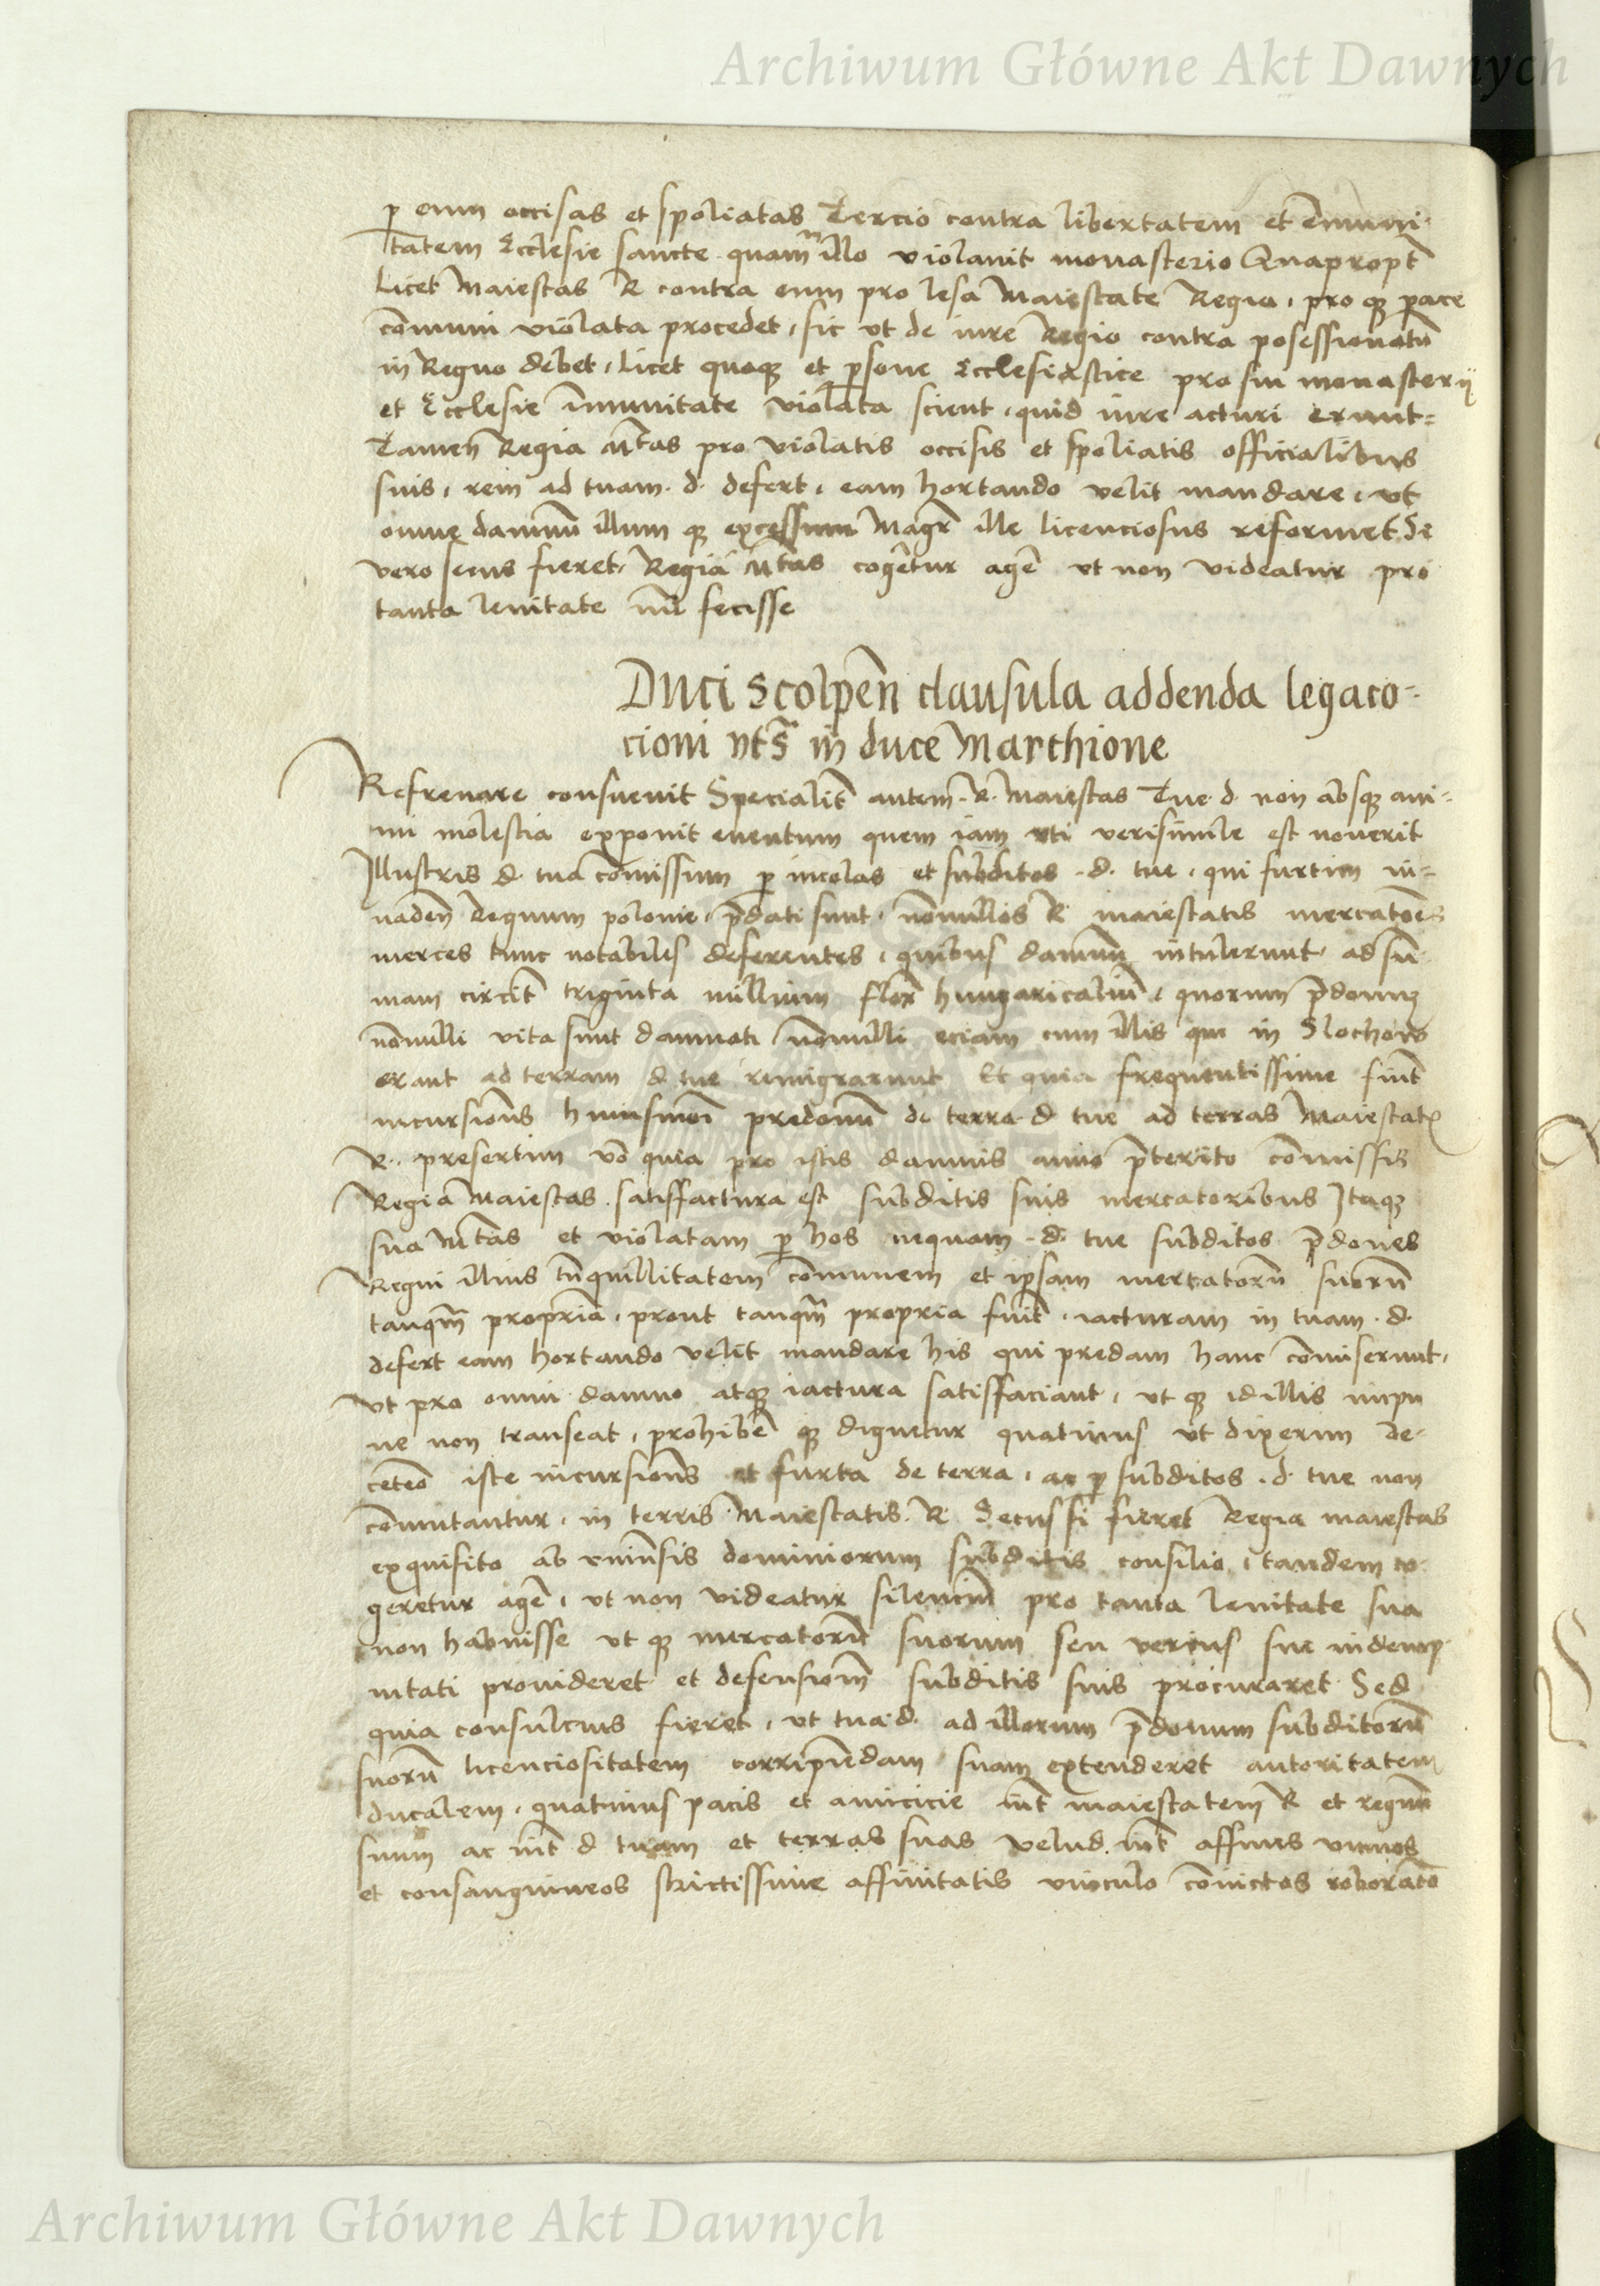 Archiwum Główne Akt Dawnych
p eum occisas et spoliatas Tercio contra libertatem et emuni-
tatem Ecclesie sancte quam in illo violavit monasterio Quapropt
Licet Maiestas R contra eum pro lesa Maiestate Regia, pro q pace
comuni violata procedet, sic ut de iure Regio contra posessionatu
in Regno debet, licet quoq et psone Ecclesiastice pro sui monasterij
et Ecclesie imunitate violata scient, quid iure acturi erunt-
Tamen Regia Mtas pro violatis occisis et spoliatis officialibus
suis, rem ad tuam d. defert, eam hortando velit mandare, ut
omne damnu illum q excessum Magr ille licenciosus reformet Si
vero secus fieret, Regia Mtas cogetur age ut non videatur pro
tanta lenitate nil fecisse
Duci Scolpen clausula addenda legaco-
cioni ut s in duce Marchione
Refrenare consuevit Specialit autem R. Maiestas Tue d. non absq ani-
mi molestia exponit eventum quem iam uti verisimile est noverit
Illustris d. tua comissum p incolas et subditos d. tue, qui furtim in-
vaden Regnum polonie, pdati sunt, nonullos R maiestatis mercatoes
merces tunc notabiles deferentes, quibus damnu intulerunt ad su-
mam circit triginta millium flor hungaricaliu, quorum pdonu
nonulli vita sunt damnati nonulli eciam cum illis qui in Slochow
erant ad terram d tue remigrarunt Et quia frequentissime fiunt
incursiones huiusmoi predonu de terra d tue ad terras Maiestatis
R. presertim vo quia pro istis damnis anno pterito comissis
Regia Maiestas satisfactura est subditis suis mercatoribus Itaq
sua Mtas et violatam p hos nequam d. tue subditos pdones
Regni illius tnquillitatem comunem et ipsam mercatoru suoru
tanqm propria, prout tanqm propria fuit, iacturam in tuam d.
defert eam hortando velit mandare his qui predam hanc comiserunt,
ut pro omni damno atq iactura satisfaciant, ut q id illis impu
ne non transeat, prohibe q dignetur quatinus ut dixerim de-
ceteo iste incursiones et furta de terra, ac p subditos d. tue non
comittantur, in terris Maiestatis R Secus si fieret Regia maiestas
exquisito ab universis dominiorum subditis consilio, tandem co-
geretur age, ut non videatur silenciu pro tanta lenitate sua
non habuisse ut q mercatoru suorum seu verius sue indemp-
nitati provideret et defensiom subditis suis procuraret Sed
quia consulcius fieret, ut tua d. ad illorum pdonum subditoru
suoru licenciositatem corripiendam suam extenderet autoritatem
ducalem, quatinus pacis et amicicie int maiestatem R et regnu
suum ac int d tuam et terras suas velud int affines
et consanguineos strictissime affinitatis vinculo convictos roborato
Archiwum Główne Akt Dawnych